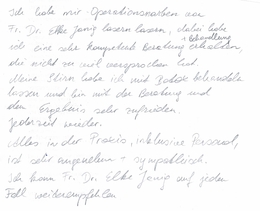 Ich habe mir Operationsnarben von
Fr. Dr. Elke Janig lasern lassen, dabei habe
+ Behandlung
ich eine sehr kompetente Beratung erhalten,
die nicht zu viel versprochen hat.
Meine Stirn habe ich mit Botox behandeln
lassen und bin mit der Beratung und
dem Ergebnis sehr zufrieden.
Jederzeit wieder.
Alles in der Praxis, inklusive Personal,
ist sehr angenehm + sympathisch.
Ich kann Fr. Dr. Elke Janig auf jeden
Fall weiterempfehlen